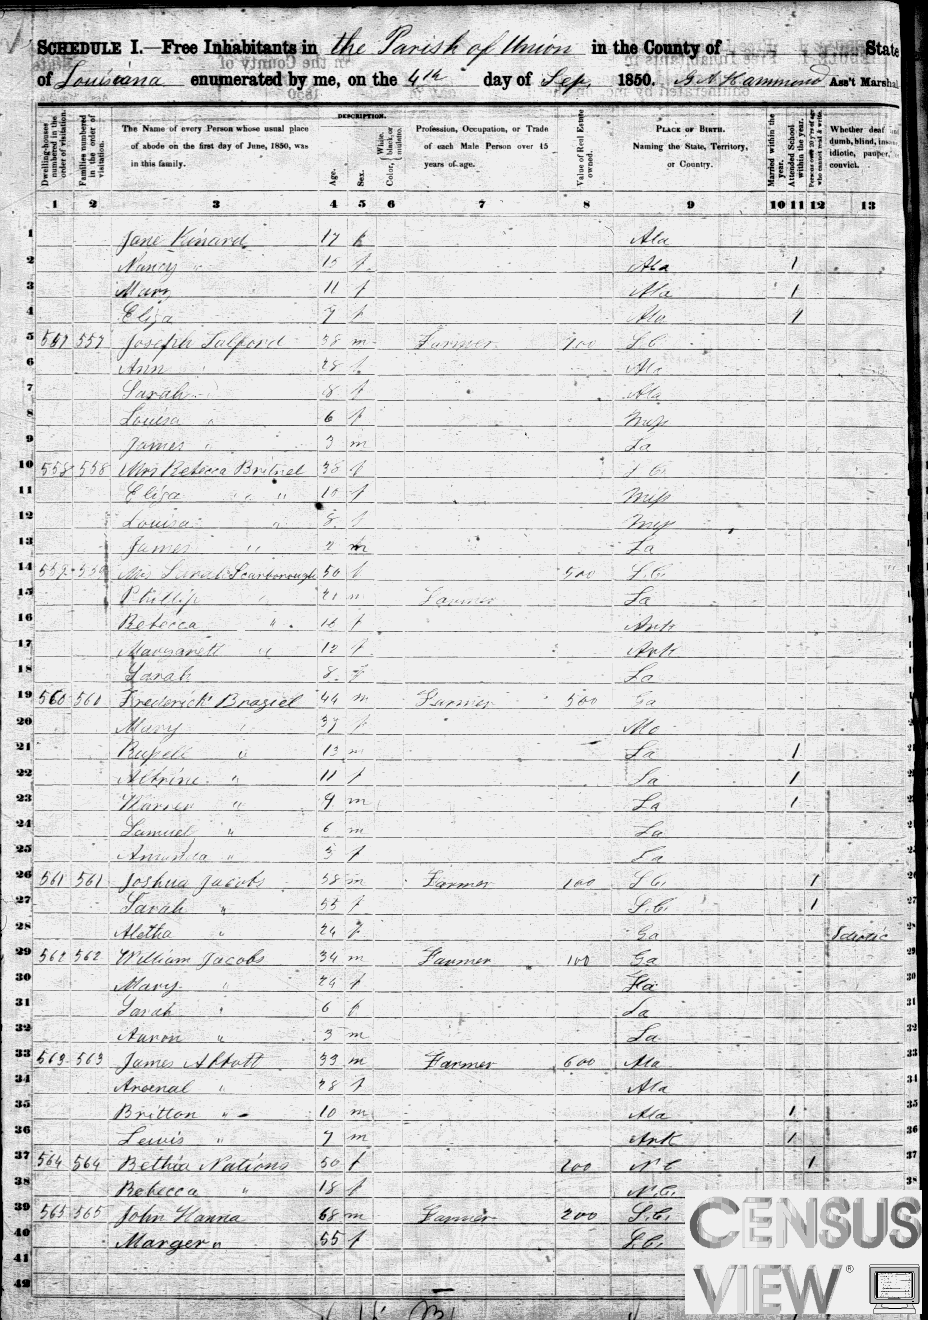 SCHEDULE I.—Free Inhabitants in the Parish of Union in the County of State
of Louisiana enumerated by me, on the 4th day of Sep. 1850. Hammond Ass't Marshal
Dwelling-houses numbered in the order of visitation.
Families numbered in the order of visitation.
The Name of every Person whose usual place of abode on the first day of June, 1850, was in this family.
DESCRIPTION.
Age.
Sex.
Color, { White, black, or mulatto.
Profession, Occupation, or Trade of each Male Person over 15 years of age.
Value of Real Estate owned.
PLACE OF BIRTH. Naming the State, Territory, or Country.
Married within the year.
Attended School within the year.
Persons over 20 y'rs of age who cannot read & write.
Whether deaf and dumb, blind, insane, idiotic, pauper, or convict.
1 2 3 4 5 6 7 8 9 10 11 12 13
1 Jane Kinard 17 f Ala
2 Nancy " f Ala 1
3 Mary 11 f Ala 1
4 Eliza f Ala 1
5 557 557 Joseph 38 m Farmer S.C.
6 Ann " 28 f Ala
7 Sarah " 8 f Ala
8 Louisa " 6 f Miss
9 James " 3 m La
10 558 558 Mrs Rebecca Britnel 38 f S.C.
11 Eliza " " 10 f Miss
12 Louisa " 8 f Miss
13 James " 2 m La
14 559 559 Mrs Sarah Scarborough 50 f 500 S.C.
15 Phillip " 21 m Farmer La
16 Rebecca " f Ark
17 Margarett " 12 f Ark
18 Sarah 8 f La
19 560 560 Frederick Braziel 44 m Farmer 500 Ga
20 Mary " 37 f Mo
21 Russell " 13 m La 1
22 " 11 f La 1
23 Warren " 9 m La 1
24 Samuel " 6 m La
25 Amanda " 3 f La
26 561 561 Joshua Jacobs 58 m Farmer 100 S.C. 1
27 Sarah " 55 f S.C. 1
28 Aletha " 24 f Ga Idiotic
29 562 562 William Jacobs 34 m Farmer 100 Ga
30 Mary " 24 f Fla
31 Sarah " 6 f La
32 Aaron " 3 m La
33 563 563 James Abbott 33 m Farmer 600 Ala
34 Arsenal " 28 f Ala
35 Britton " 10 m Ala 1
36 Lewis " 7 m Ark 1
37 564 564 Bethia Nations 50 f 200 N.C. 1
38 Rebecca " 18 f N.C.
39 565 565 John Hanna 68 m Farmer 200 S.C.
40 Marger " 55 f S.C.
41
42
CENSUS
VIEW®